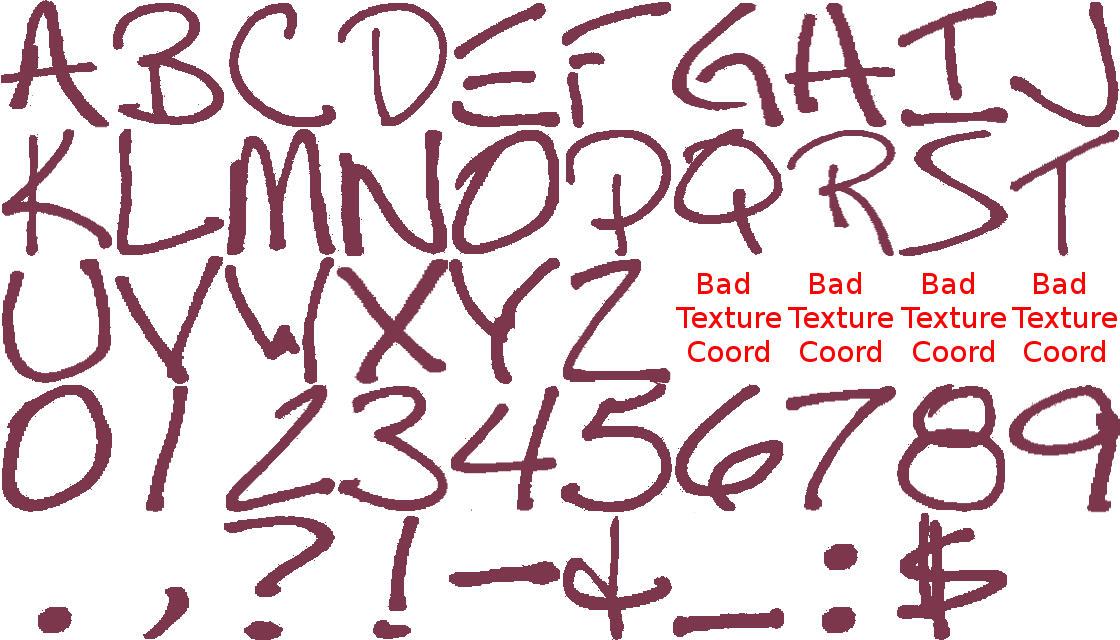 ABCDEFGHIJ
KLMNOPQRST
UVWXYZ Bad Texture Coord Bad Texture Coord Bad Texture Coord Bad Texture Coord
0123456789
.,?!-&_:$